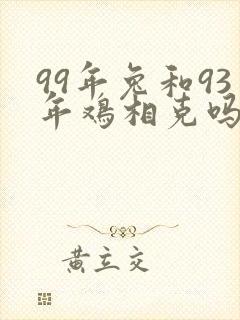 99年兔和93
年鸡相克吗
黄立交